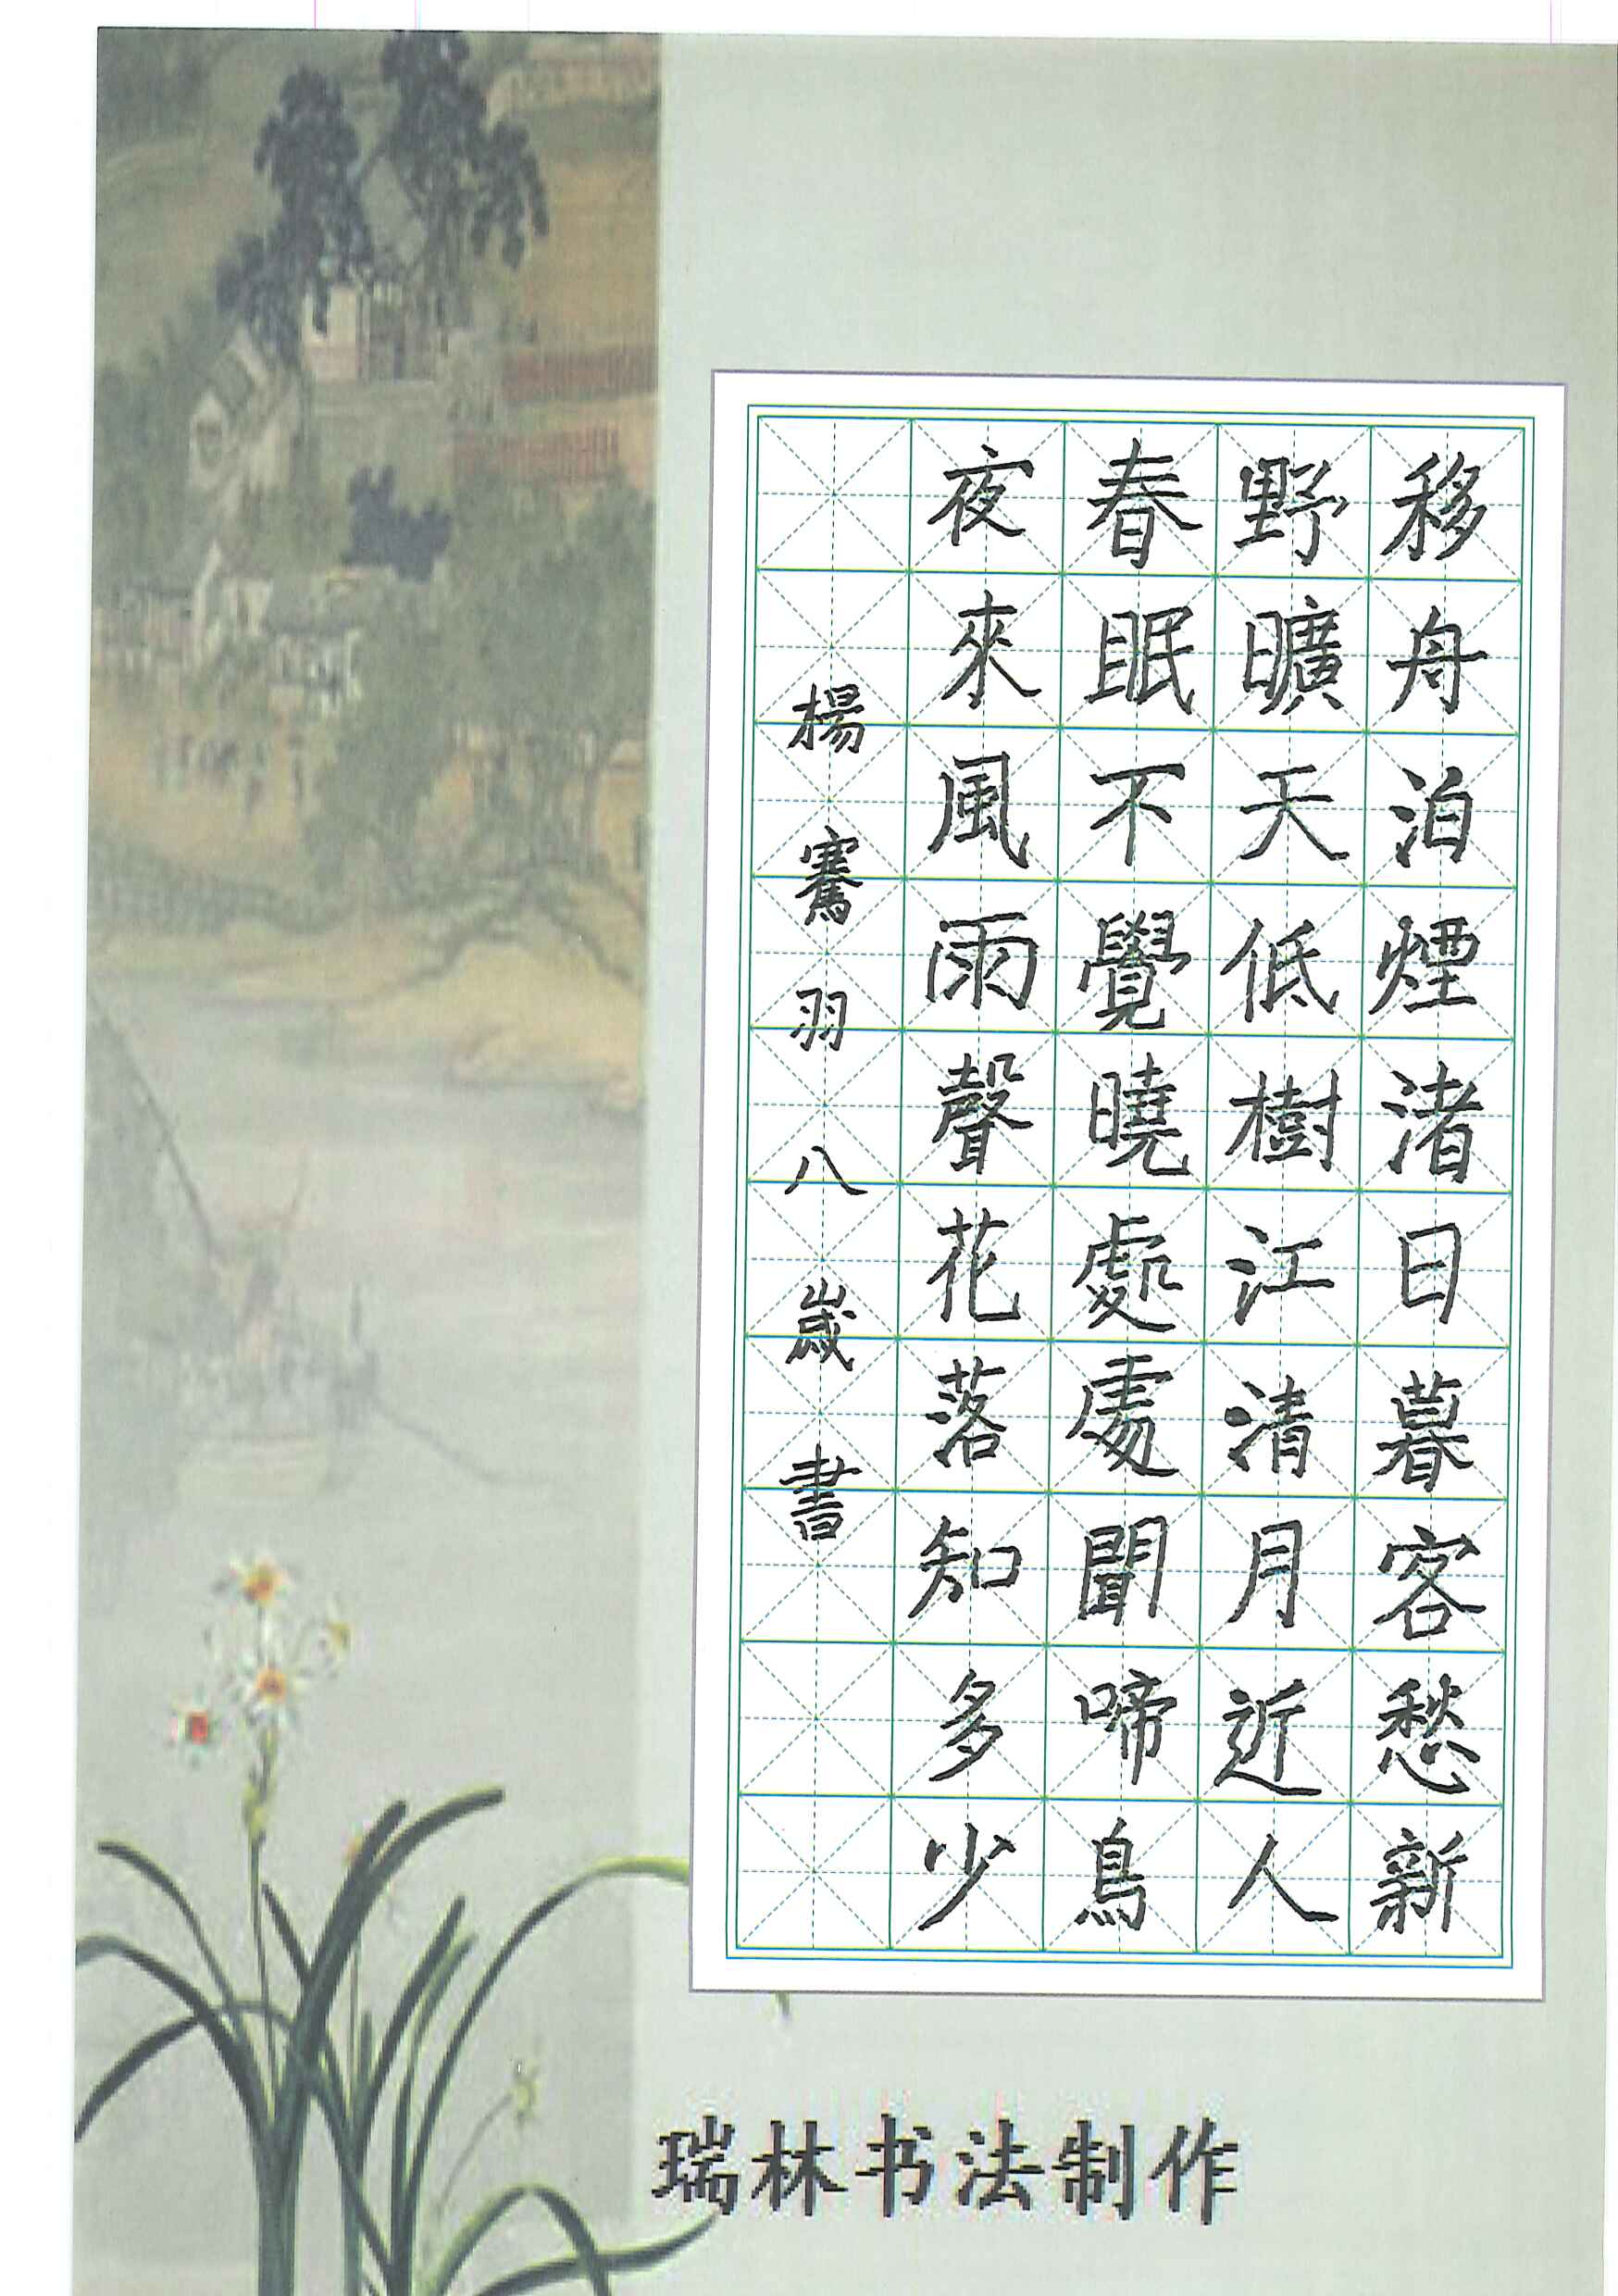 移舟泊煙渚日暮客愁新
野曠天低樹江清月近人
春眠不覺曉處處聞啼鳥
夜來風雨聲花落知多少
楊騫羽八歲書
瑞林书法制作